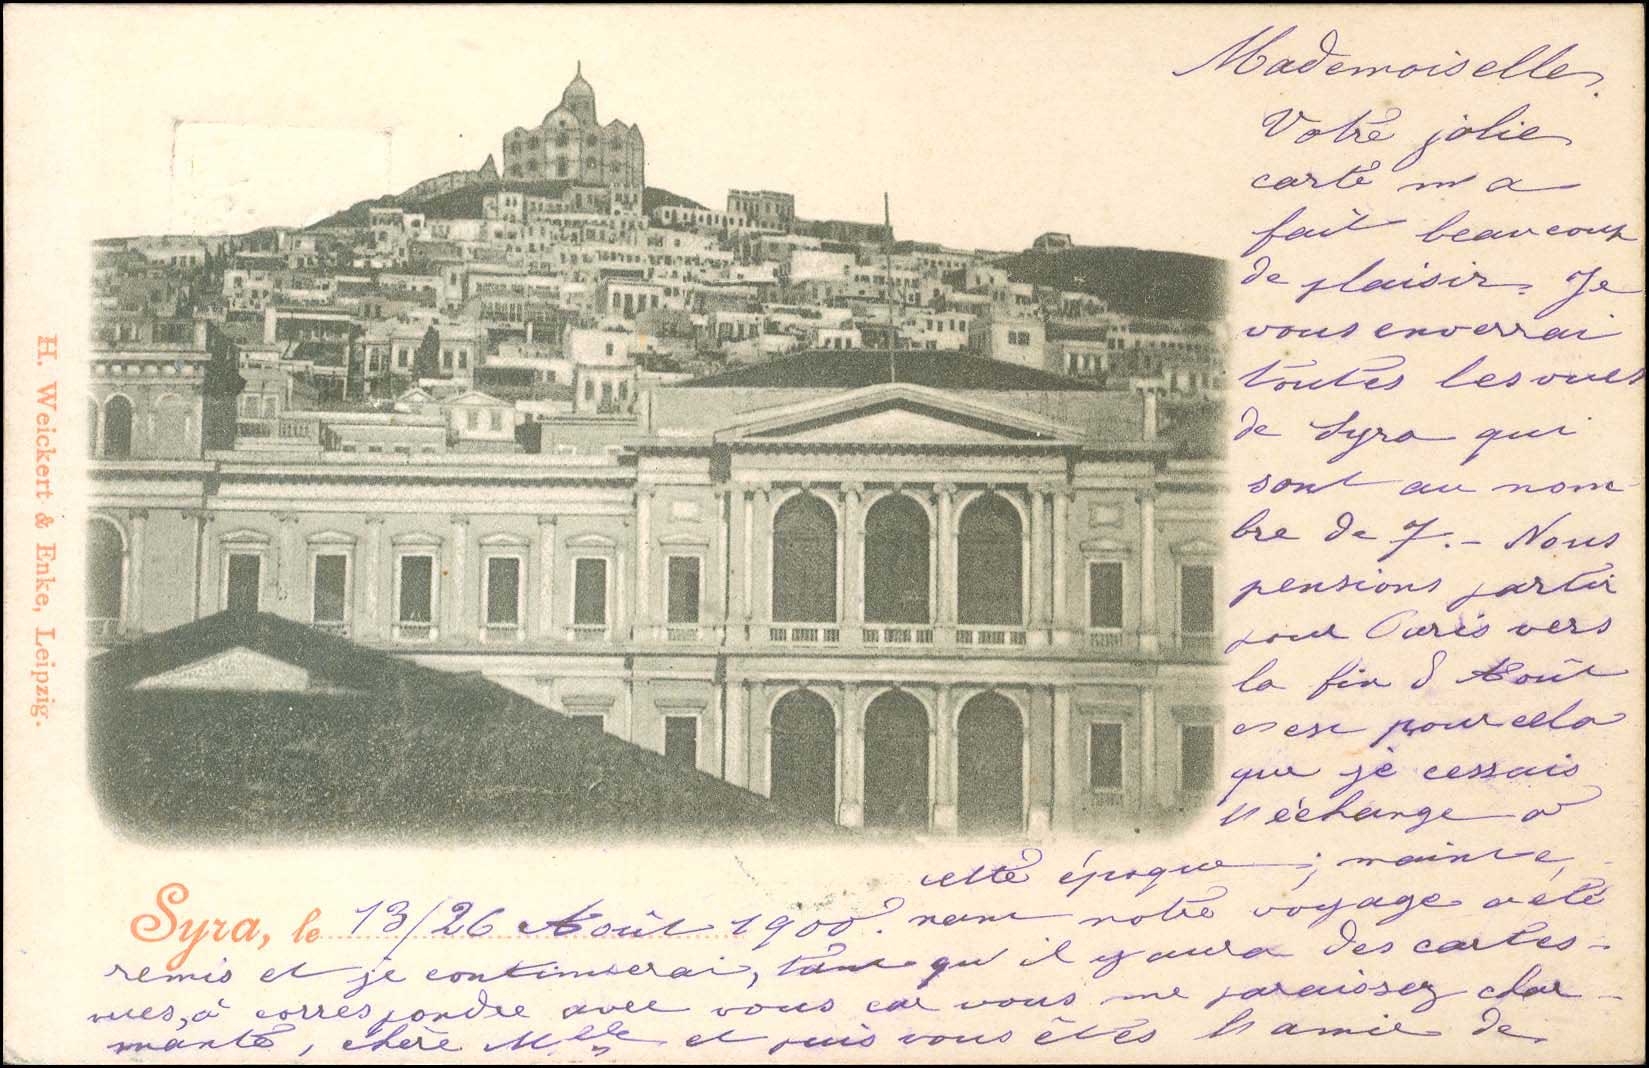 Mademoiselle,
Votre jolie
carte m'a
fait beaucoup
de plaisir. Je
vous enverrai
toutes les vues
de Syra qui
sont au nom-
bre de 7. - Nous
pensions partir
pour Paris vers
la fin d'Août
c'est pour cela
que je cessais
l'échange à
cette époque ; mainte,
nant notre voyage a été
Syra, le 13/26 Août 1900.
remis et je continuerai, tant qu'il y aura des cartes-
vues, à correspondre avec vous car vous me paraissez char-
mante, chère Mlle et puis vous êtes l'amie de
H. Weickert & Enke, Leipzig.